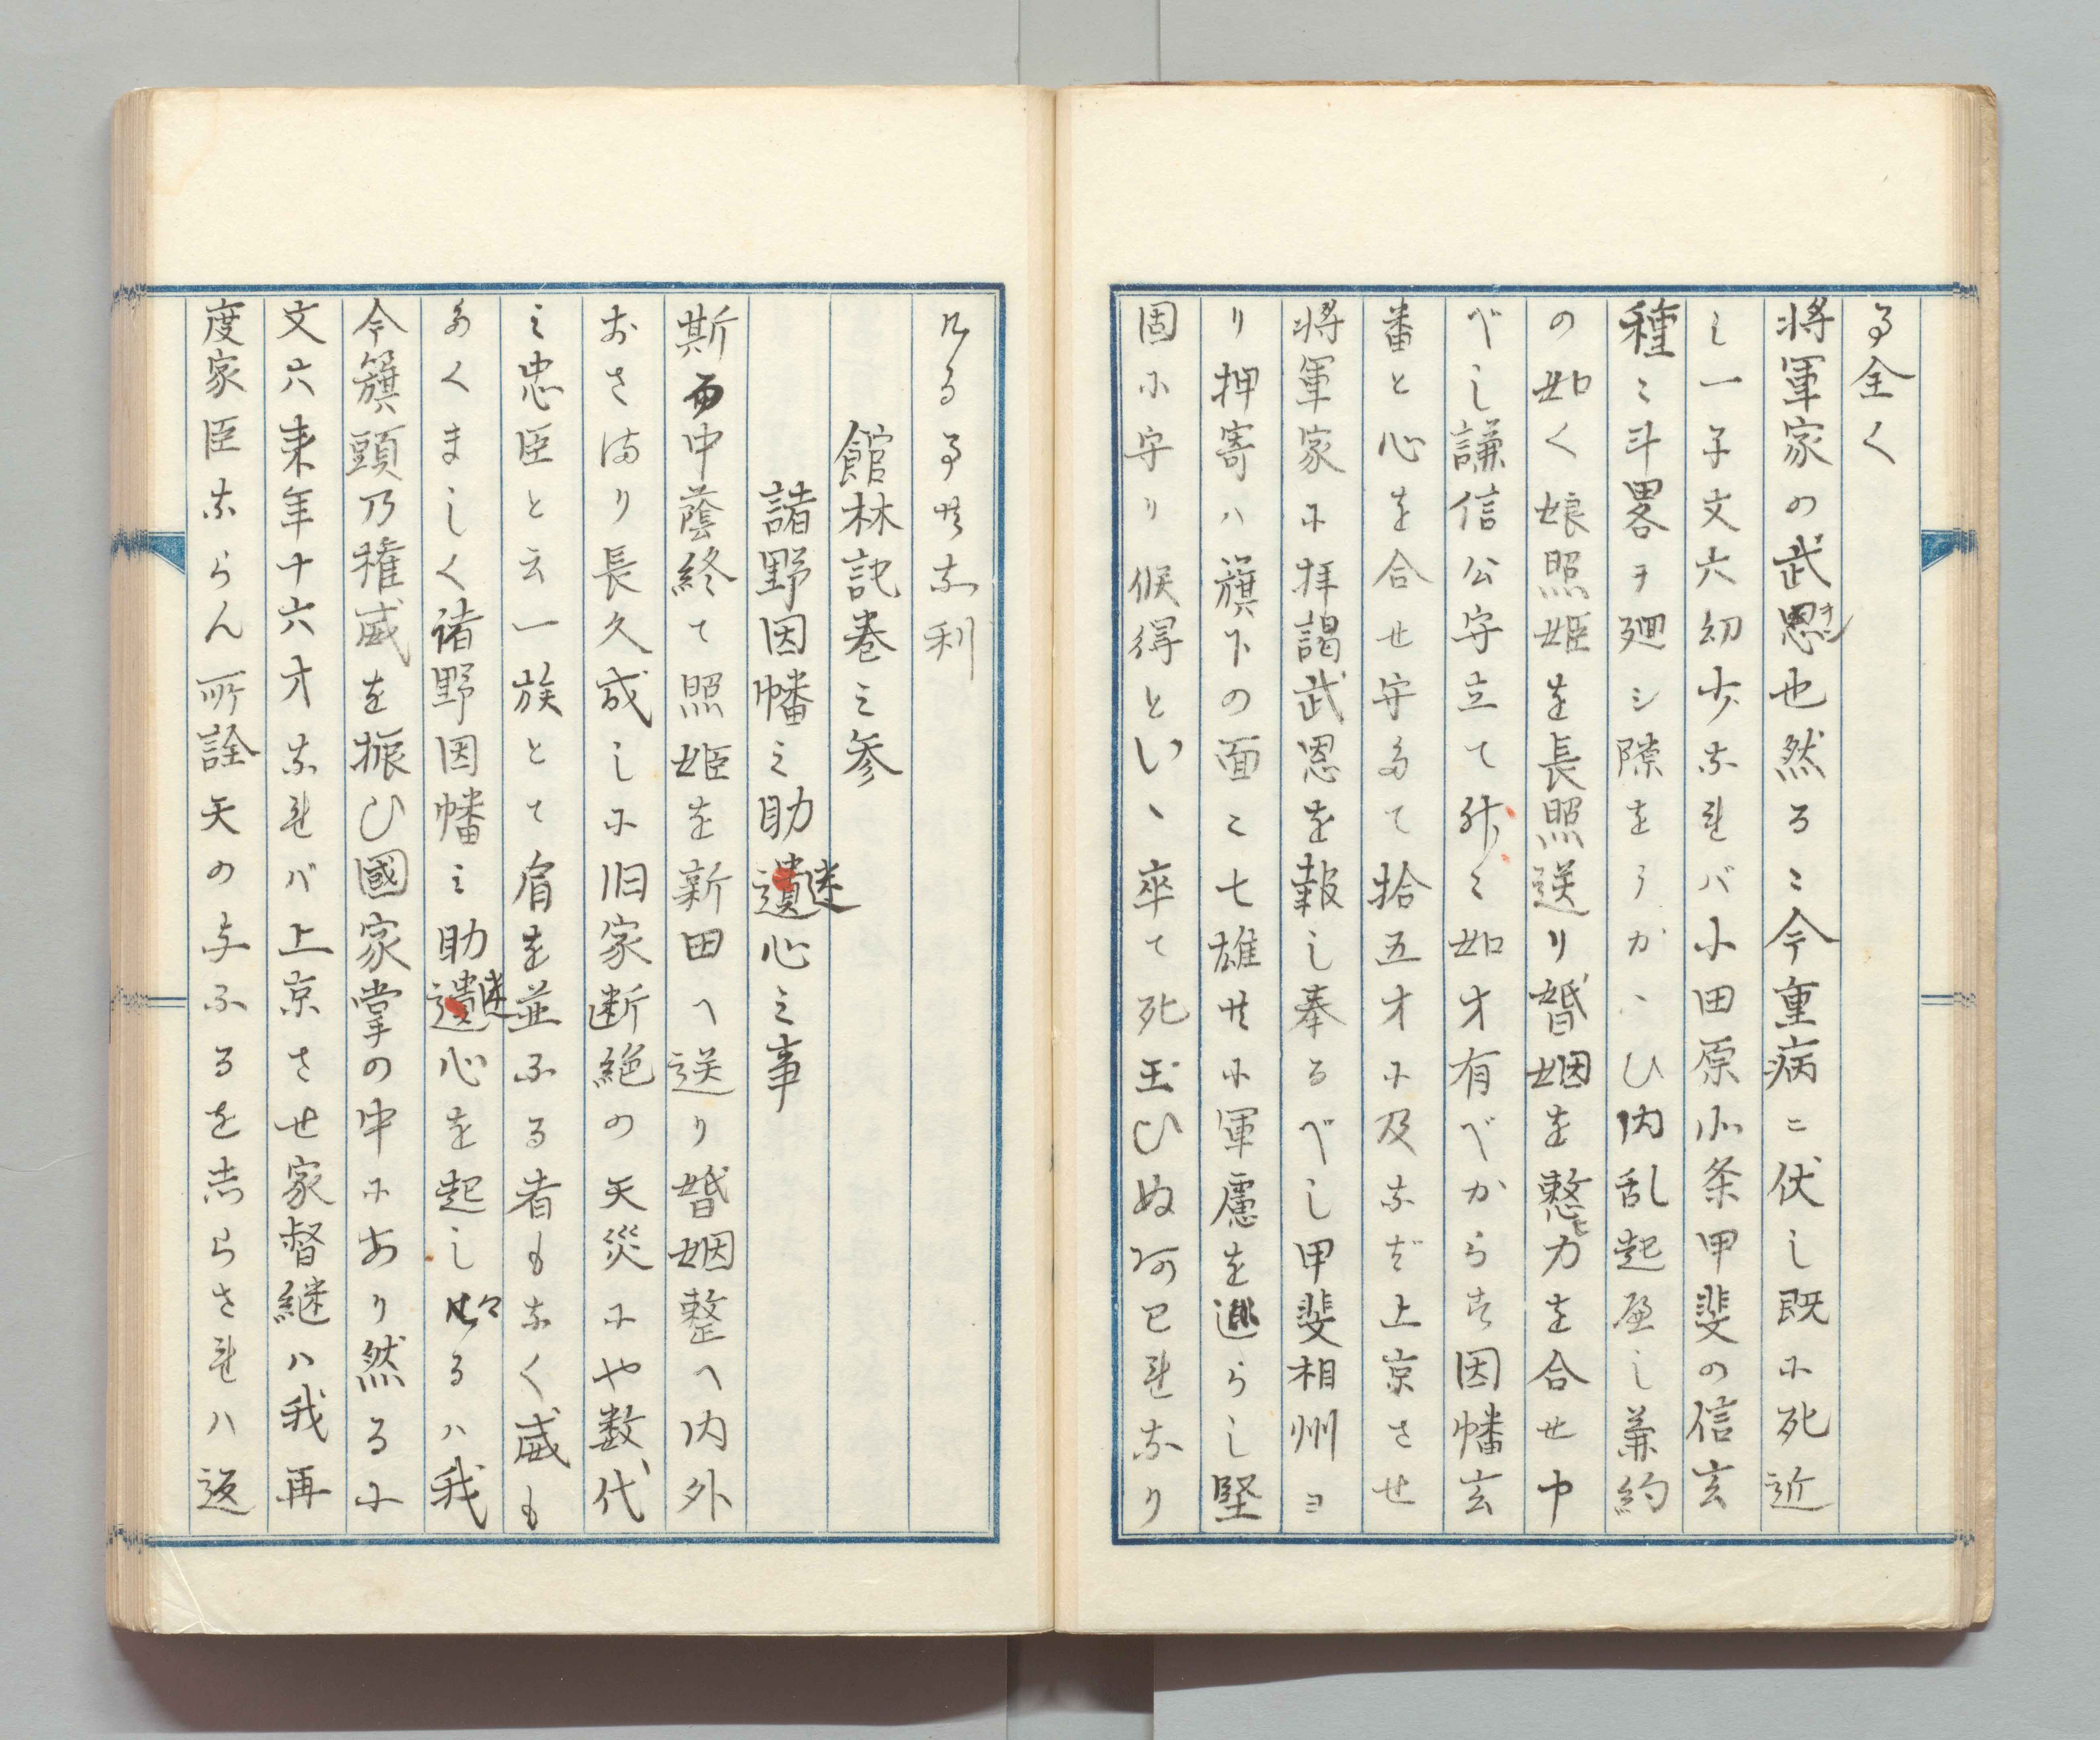 る全く
将軍家の武恩也然るニ今重病ニ伏し既に死近
し一子文六幼少なればバ小田原北条甲斐の信玄
種ミ斗畧ヲ廻シ隙をうかゞひ内乱起趣し兼約
の如く娘照姫を長照送り婚姻を整力を合せ中
べし謙信公守立て弥ミ如才有べからず因幡玄
番と心を合せ守立て拾五才に及なば上京させ
将軍家に拝謁武恩を報し奉るべし甲斐相州ヨ
リ押寄ハ旗下の面ミ七雄共に軍慮を廻らし堅
固に守り候得といゝ卒て死玉ひぬ何ワれなり
ける事共なり
館林記巻之参
諸野因幡之助謎心之事
斯而中蔭終て照姫を新田へ送り婚姻整へ内外
おさまり長久成しに旧家断絶の天災にや数代
之忠臣と云一族とて肩を並ふる者もなく威も
たくましく諸野因幡之助謎心を起し始るハ我
今籏頭乃権威を振ひ國家掌の中にあり然るに
文六来年十六才なればバ上京させ家督継ハ我再
度家臣ならん所詮天の与ふるを志らされハ返